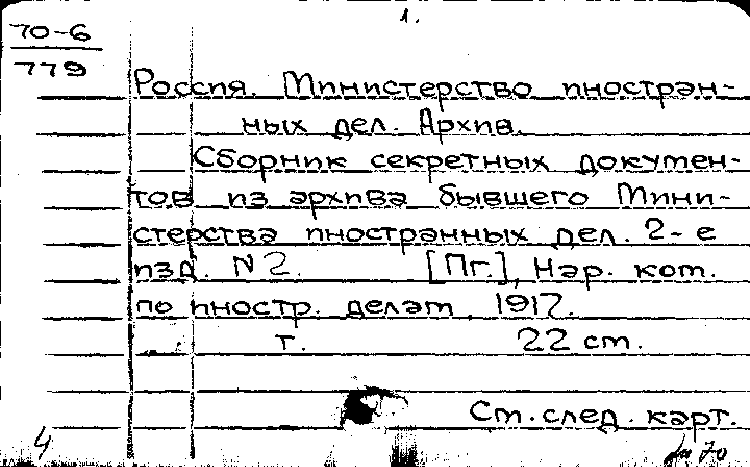 1.
70-6
779
Россия. Министерство иностран-
ных дел. Архив.
Сборник секретных докумен-
тов из архива бывшего Мини-
стерства иностранных дел. 2-е
изд. N 2. [Пг.], Нар. ком.
по иностр. делам, 1917.
т. 22 см.
См. след. карт.
4
70